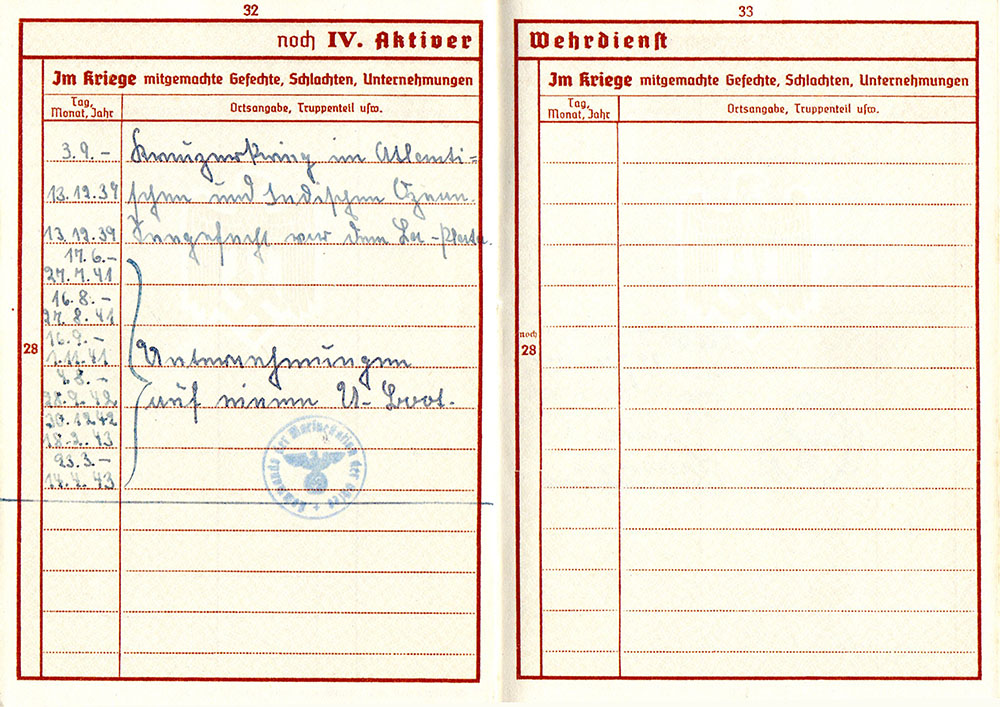 32
noch IV. Aktiver
Im Kriege mitgemachte Gefechte, Schlachten, Unternehmungen
Tag,
Monat, Jahr
Ortsangabe, Truppenteil usw.
3.9. – Kreuzerkrieg im Atlanti-
13.12.39 schen und Indischen Ozean.
13.12.39 Seegefecht vor dem La-Plata.
17.6.–
27.7.41
16.8.–
27.8.41
16.9.–
1.11.41
4.8.–
28.9.42
30.12.42
18.2.43
23.3.–
14.4.43
28
Unternehmungen
auf einem U-Boot.
Kommando der Marinestation der Ostsee
33
Wehrdienst
Im Kriege mitgemachte Gefechte, Schlachten, Unternehmungen
Tag,
Monat, Jahr
Ortsangabe, Truppenteil usw.
noch
28